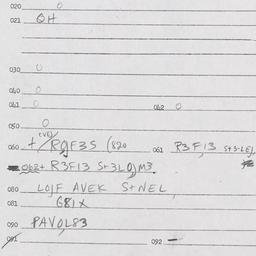 020 0
021 QH
030 0
040 0
041 0 042 0
050 0
060 + RQF35 (820 061 R3F13
062+ R3F13 S+3LQJM3
080 LOJF AVEK S+NEL
081 G81X
090 PAVOL83
091 092 -